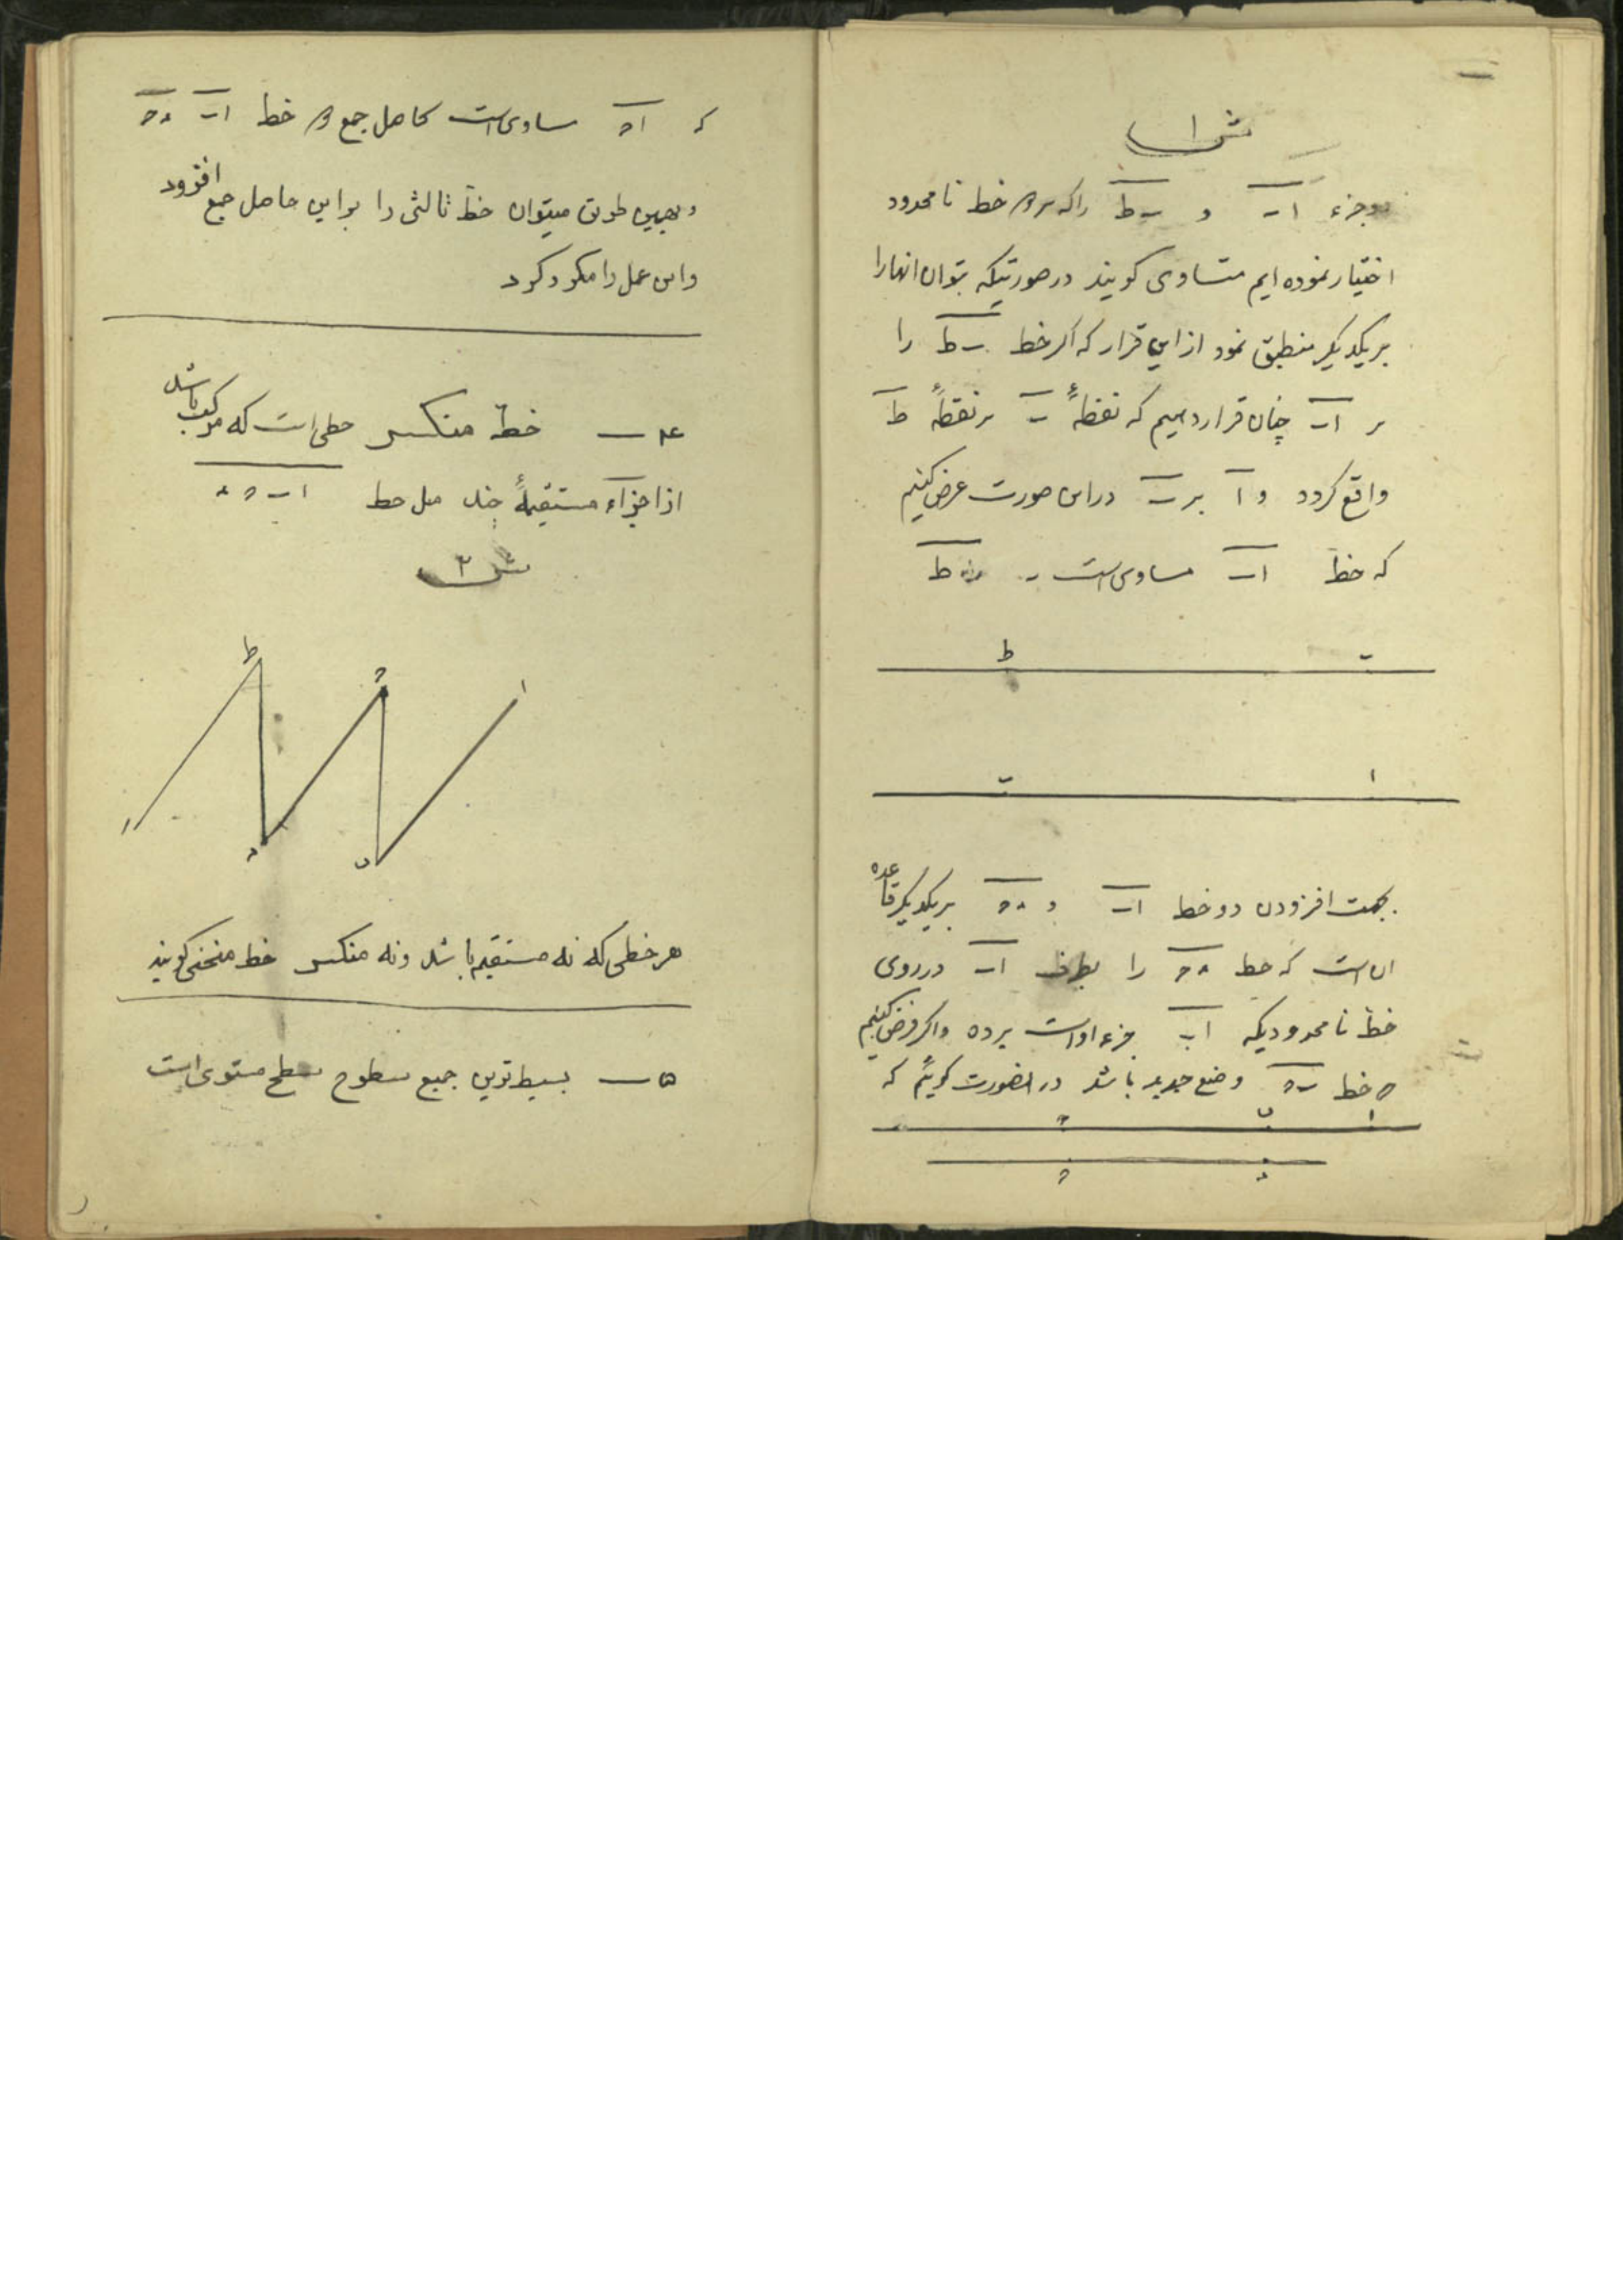 ش ۱
دو جزء اب و ب ط را که بر دو خط نامحدود
اختیار نموده ایم متساوی کویند در صورتیکه بتوان انها را
بر یکدیکر منطبق نمود از این قرار که اکر خط ب ط را
بر اب چنان قرار دهیم که نقطهٔ ب بر نقطهٔ ط
واقع کردد و آ بر ب در این صورت عرض کنیم
که خط اب مساوی است ب ط
ط ب
ب ا
بجهت افزودن دو خط اب و د ه بر یکدیکر قاعده
ان است که خط د ه را بطرف اب در روی
خط نامحدودیکه اب جزء اواست برده و اکر فرض کنیم
ه خط ب ه وضع جدید باشد در اینصورت کوئیم که
ه ب ا
ه د
که ا ه مساوی است بحاصل جمع دو خط اب د ه
و بهمین طریق میتوان خط ثالثی را بر این حاصل جمع افزود
و این عمل را مکرر کرد
۴ — خط منکسر خطی است که مرکب باشد
از اجزآء مستقیمهٔ چند مثل خط ا ب ه د
ش ۲
ط ه ا
ا د ب
هر خطی که نه مستقیم باشد و نه منکسر خط منحنی کویند
۵ — بسیط ترین جمیع سطوح سطح مستوی است